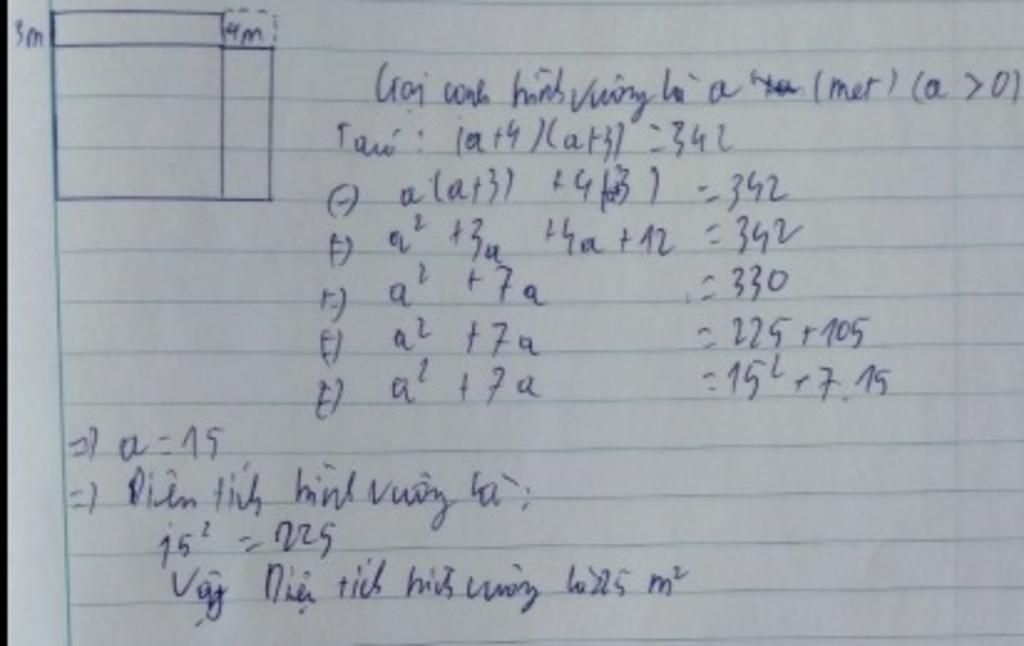 3m 4m
Gọi cạnh hình vuông là a (met) (a > 0)
Ta có: (a+4)(a+3) = 342
(=) a(a+3) + 4(+3) = 342
(=) a² + 3a + 4a + 12 = 342
(=) a² + 7a = 330
(=) a² + 7a = 225 + 105
(=) a² + 7a = 15² + 7.15
=) a = 15
=) Diện tích hình vuông là:
15² = 225
Vậy Diện tích hình vuông là 225 m²